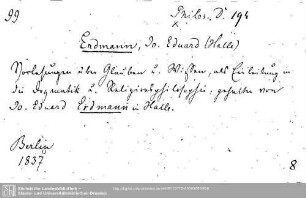 99
Philos. D. 194
Erdmann, Jo. Eduard (Halle)
Vorlesungen über Glauben u. Wissen, als Einleitung in
die Dogmatik u. Religionsphilosophie, gehalten von
Jo. Eduard Erdmann in Halle.
Berlin
1837
8
Sächsische Landesbibliothek -
Staats- und Universitätsbibliothek Dresden